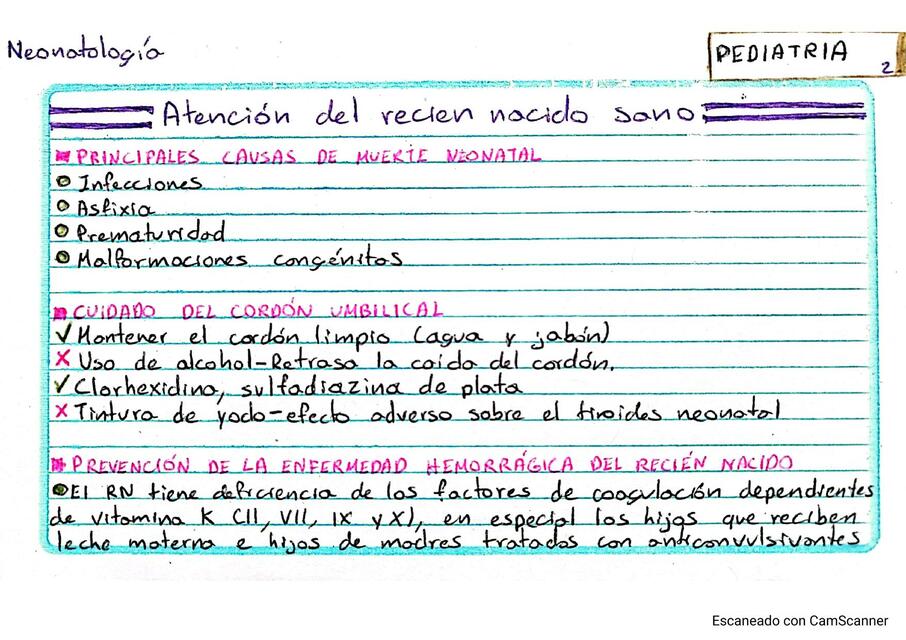 Neonatología
PEDIATRIA
2
Atención del recien nacido sano
PRINCIPALES CAUSAS DE MUERTE NEONATAL
Infecciones
Asfixia
Prematuridad
Malformaciones congénitas
CUIDADO DEL CORDÓN UMBILICAL
✓ Mantener el cordón limpio (agua y jabón)
X Uso de alcohol-Retrasa la caida del cordón.
✓ Clorhexidina, sulfadiazina de plata
X Tintura de yodo-efecto adverso sobre el tiroides neonatal
PREVENCIÓN DE LA ENFERMEDAD HEMORRÁGICA DEL RECIÉN NACIDO
El RN tiene deficiencia de los factores de coagulación dependientes
de vitamina K (II, VII, IX y X), en especial los hijos que reciben
leche materna e hijos de madres tratados con anticonvulsivantes
Escaneado con CamScanner